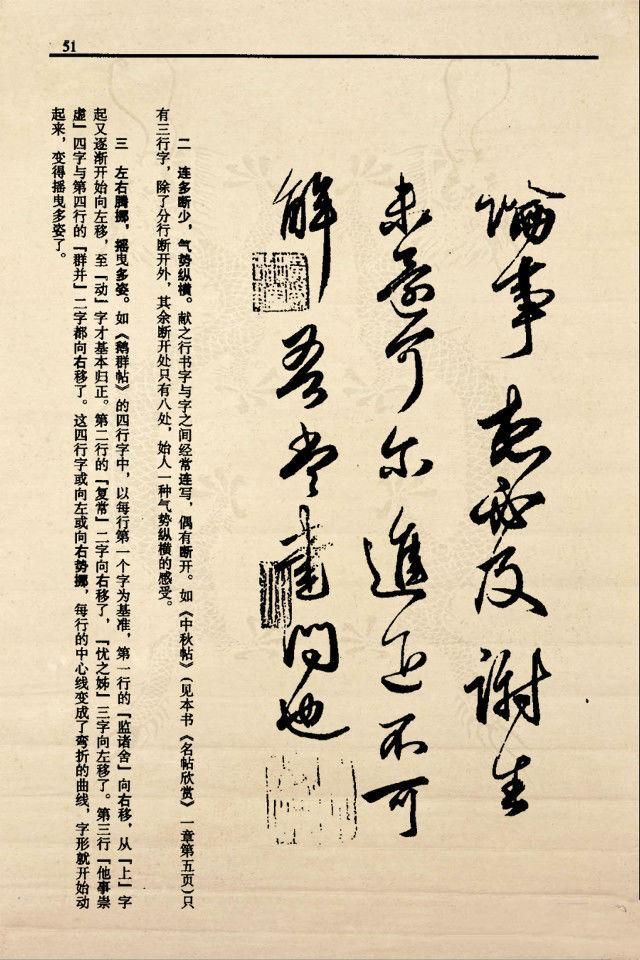 51
論事恐必及謝生
未還可尔進退不可
解吾當書問也
二　连多断少，气势纵横。献之行书字与字之间经常连写，偶有断开。如《中秋帖》（见本书《名帖欣赏》一章第五页）只
有三行字，除了分行断开外，其余断开处只有八处，始人一种气势纵横的感受。
三　左右腾挪，摇曳多姿。如《鹅群帖》的四行字中，以每行第一个字为基准，第一行的「监诸舍」向右移，从「上」字
起又逐渐开始向左移，至「动」字才基本归正。第二行的「复常」二字向右移了，「忧之姊」三字向左移了。第三行「他事崇
虚」四字与第四行的「群并」二字都向右移了。这四行字或向左或向右势挪，每行的中心线变成了弯折的曲线，字形就开始动
起来，变得摇曳多姿了。